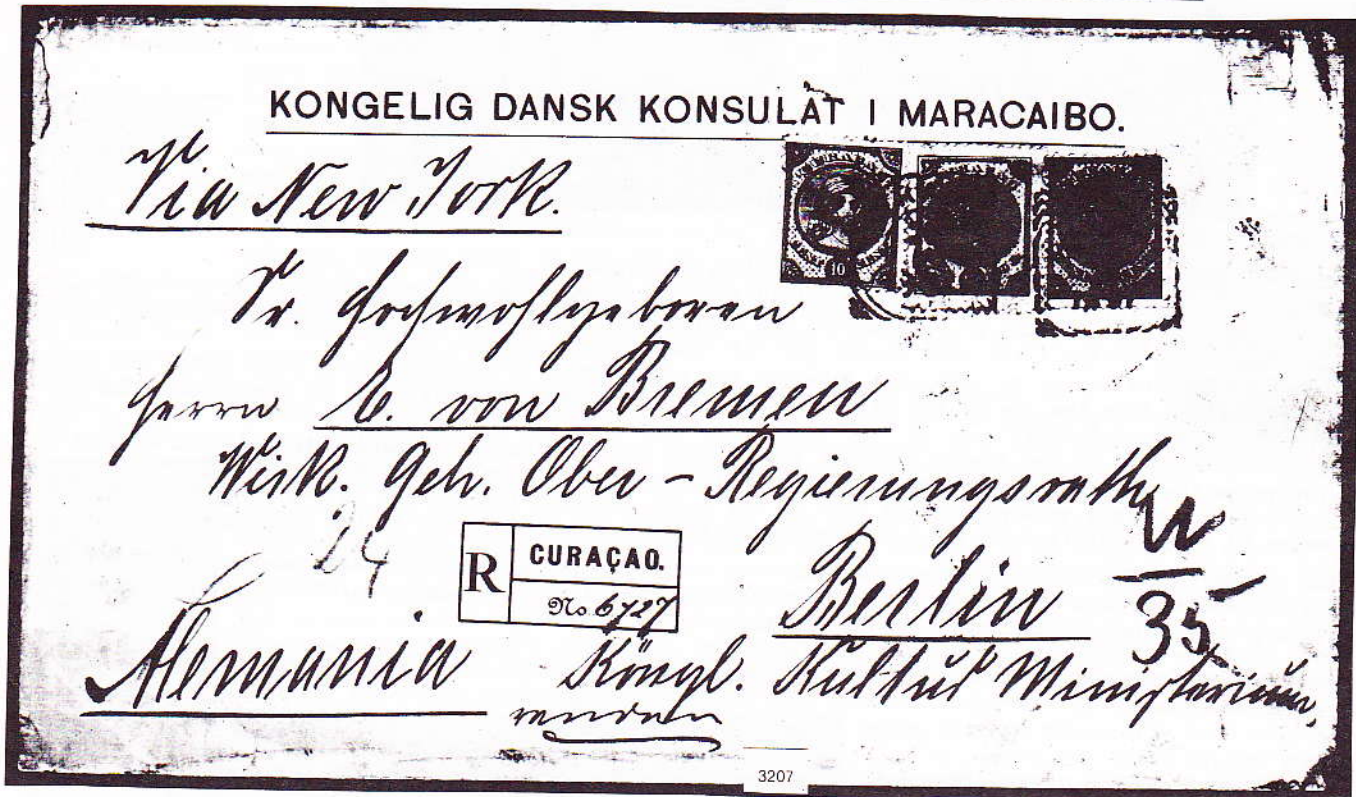 KONGELIG DANSK KONSULAT I MARACAIBO.
Via New York.
10
Sr. Hochwohlgeboren
Herrn E. von Bremen
Wirk. Geh. Ober-Regierungsrath
24
R CURAÇAO.
No 6727
Berlin
35
Alemania
Köngl. Kultus Ministerium,
wenden
3207